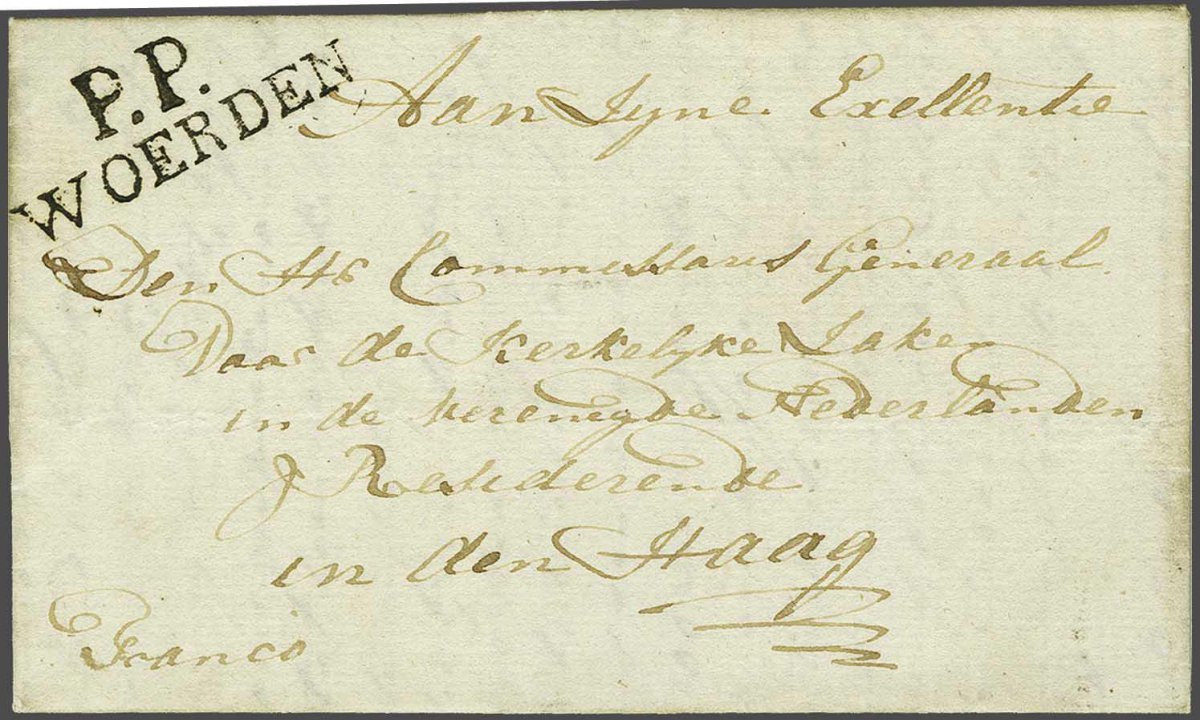 P.P.
WOERDEN
Aan Zyne Exellentie
Den Hr Commissaris Generaal
Voor de Kerkelyke Zaken
in de Verenigde Nederlanden
Resiederende
in den Haag
Franco